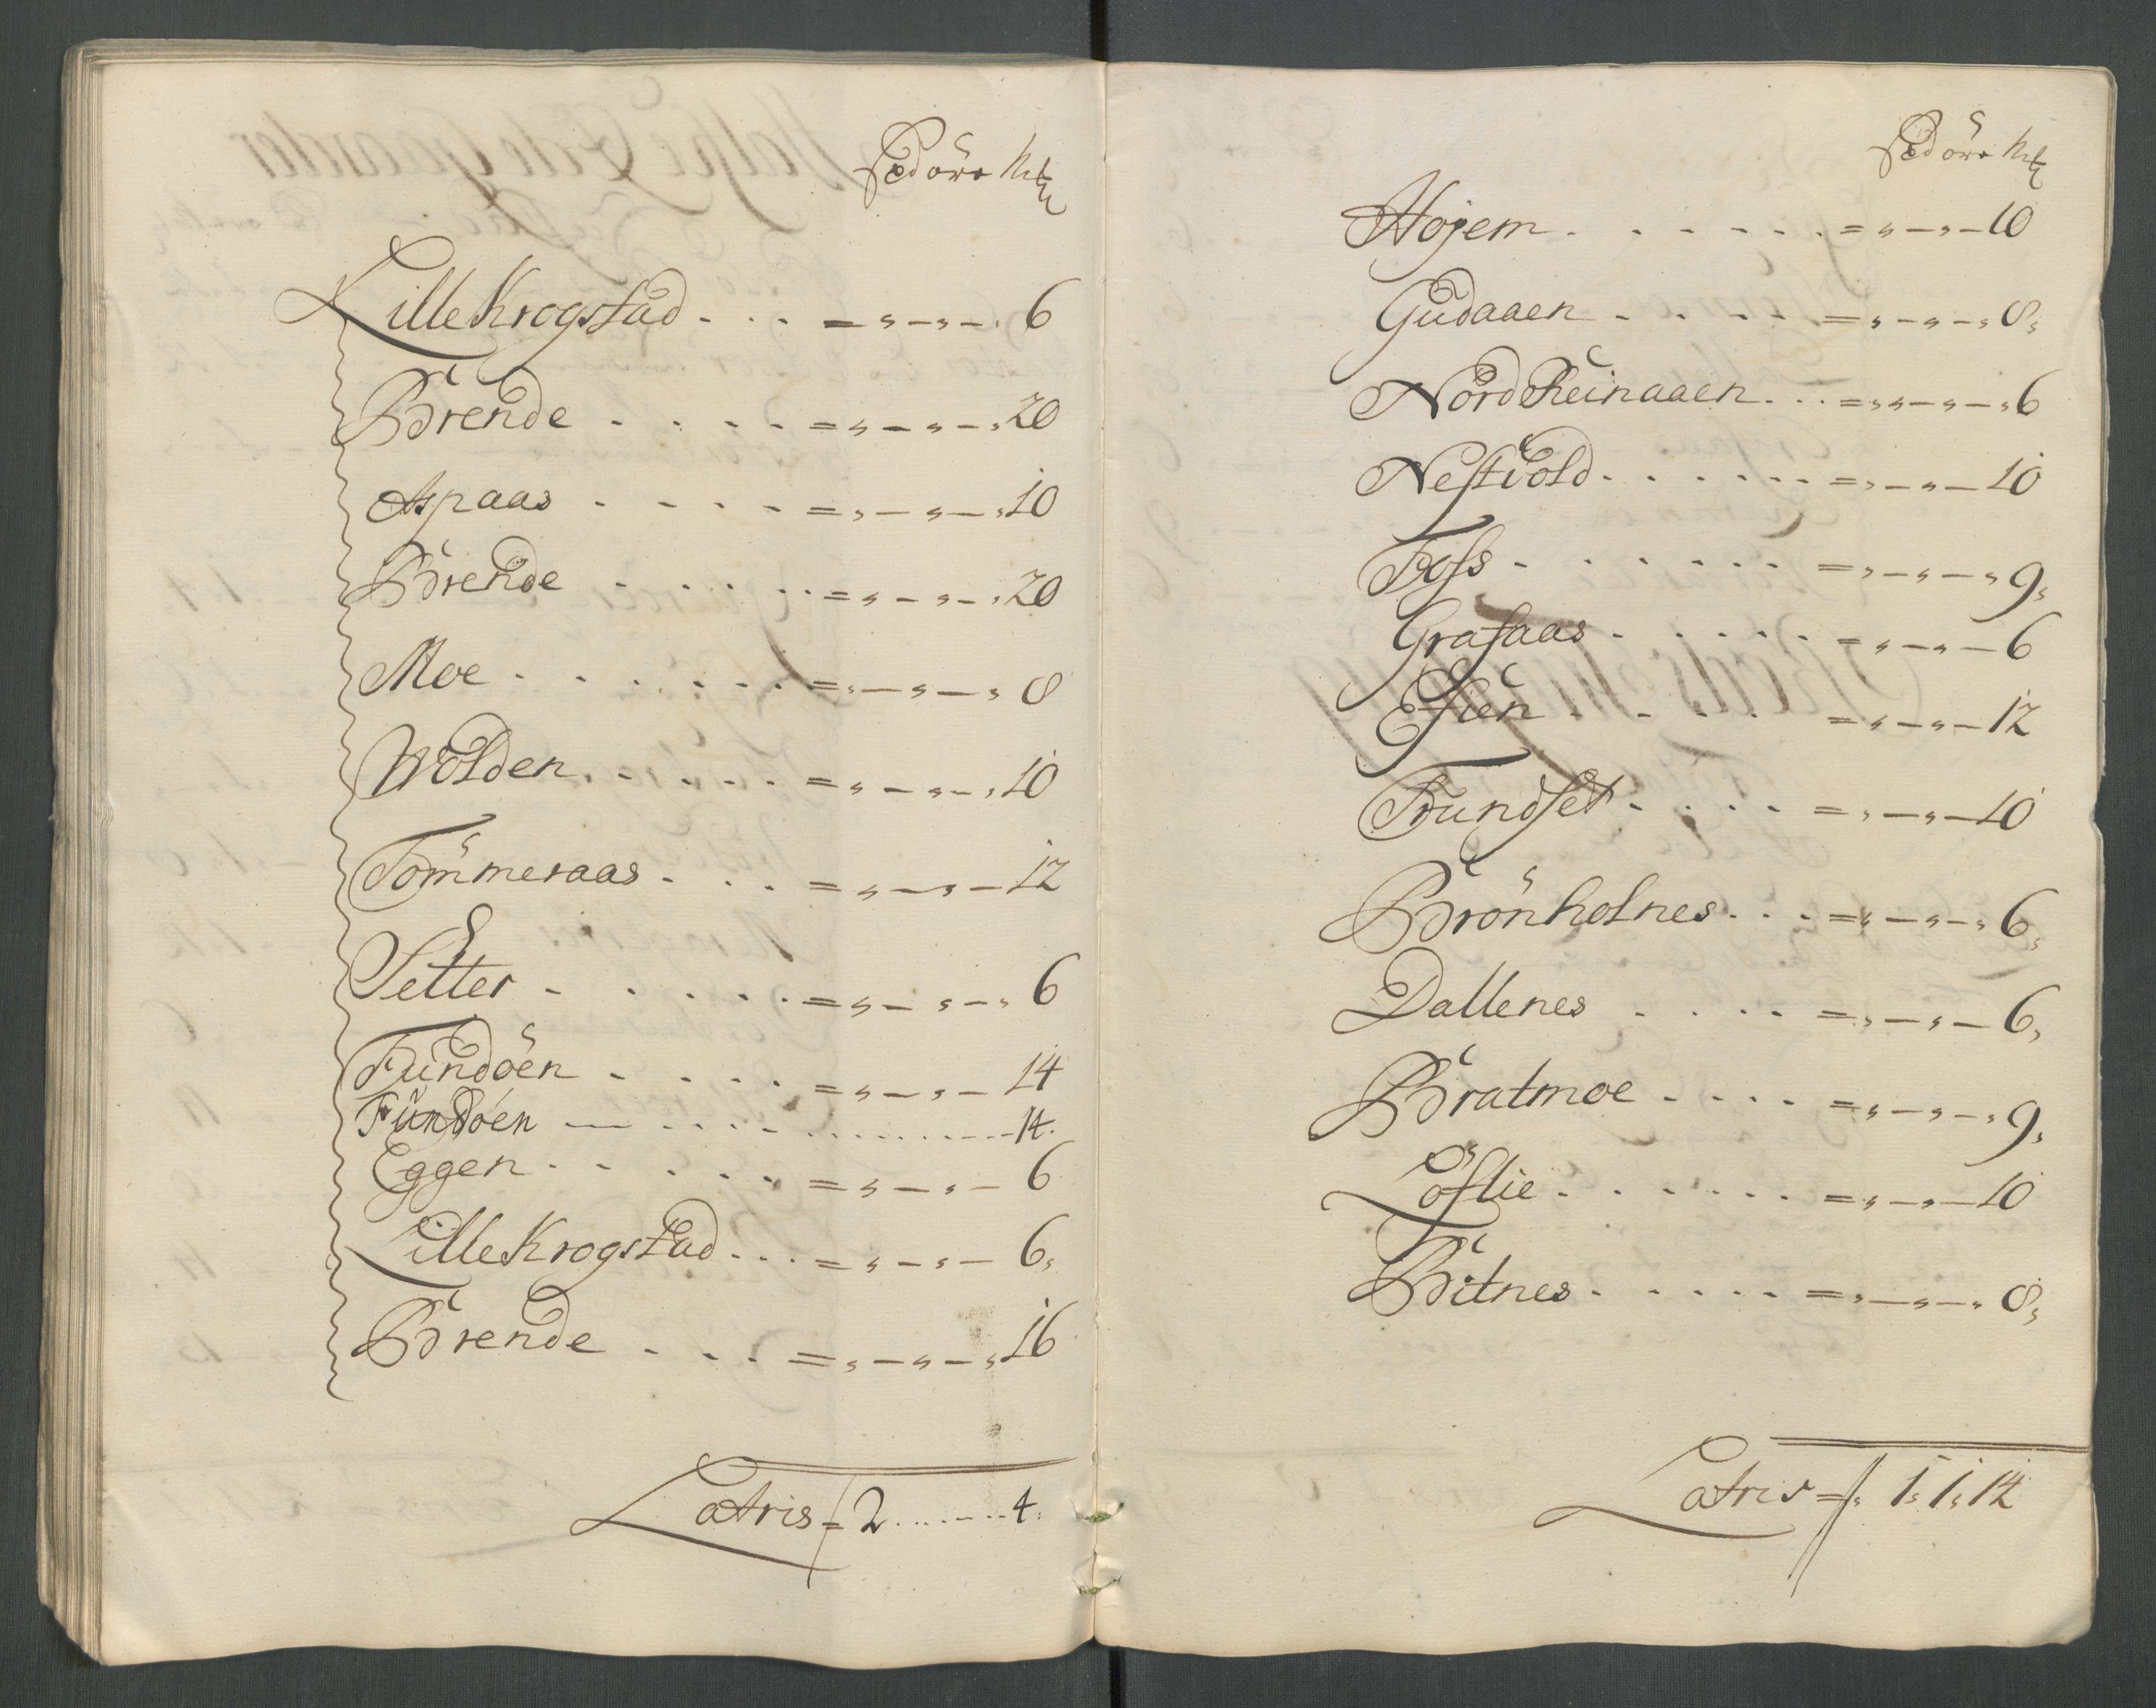 Spd öre mk
Lille Krogstad . . . = „ – „ – „ 6
Brende . . . . = „ – „ – „ 20
Aspaas . . . . = „ – „ – „ 10
Brende . . . . = „ – „ – „ 20
Moe . . . . . . = „ – „ – „ 8
Wolden . . . . . = „ – „ – „ 10
Tömmeraas . . . = „ – „ – 12
Setter . . . . . = „ – „ – „ 6
Fundöen . . . . = „ – „ – 14
Fundöen — . . . . . . . . 14.
Eggen . . . . . = „ – „ – 6
Lille Krogstad . . . = „ – „ – 6„
Brende . . . = „ – „ – „ 16
Latris = 2 . . . . . . 4.
Höjem . . . . . . = „ – „ – 10
Gudaaen . . . . = „ – „ – „ 8„
Nord Reinaaen . . . = „ „ – „ – „ 6
Nestvold . . . . . . = „ – „ – 10
Foss . . . . . . = „ – „ – „ 9„
Grafaas . . . . . = „ – „ – 6
Elien . . . . = „ – „ – 12
Trundset . . . . = „ – „ – 10
Brönholnes . . . = „ – „ – „ 6„
Dallenes . . . . = „ – „ – 6„
Bratmoe . . . . = „ – „ – „ 9„
Löflie . . . . . . = „ – „ – 10
Bitnes . . . . . = „ – „ – „ 8„
Latris = „ 1„ 1„ 14